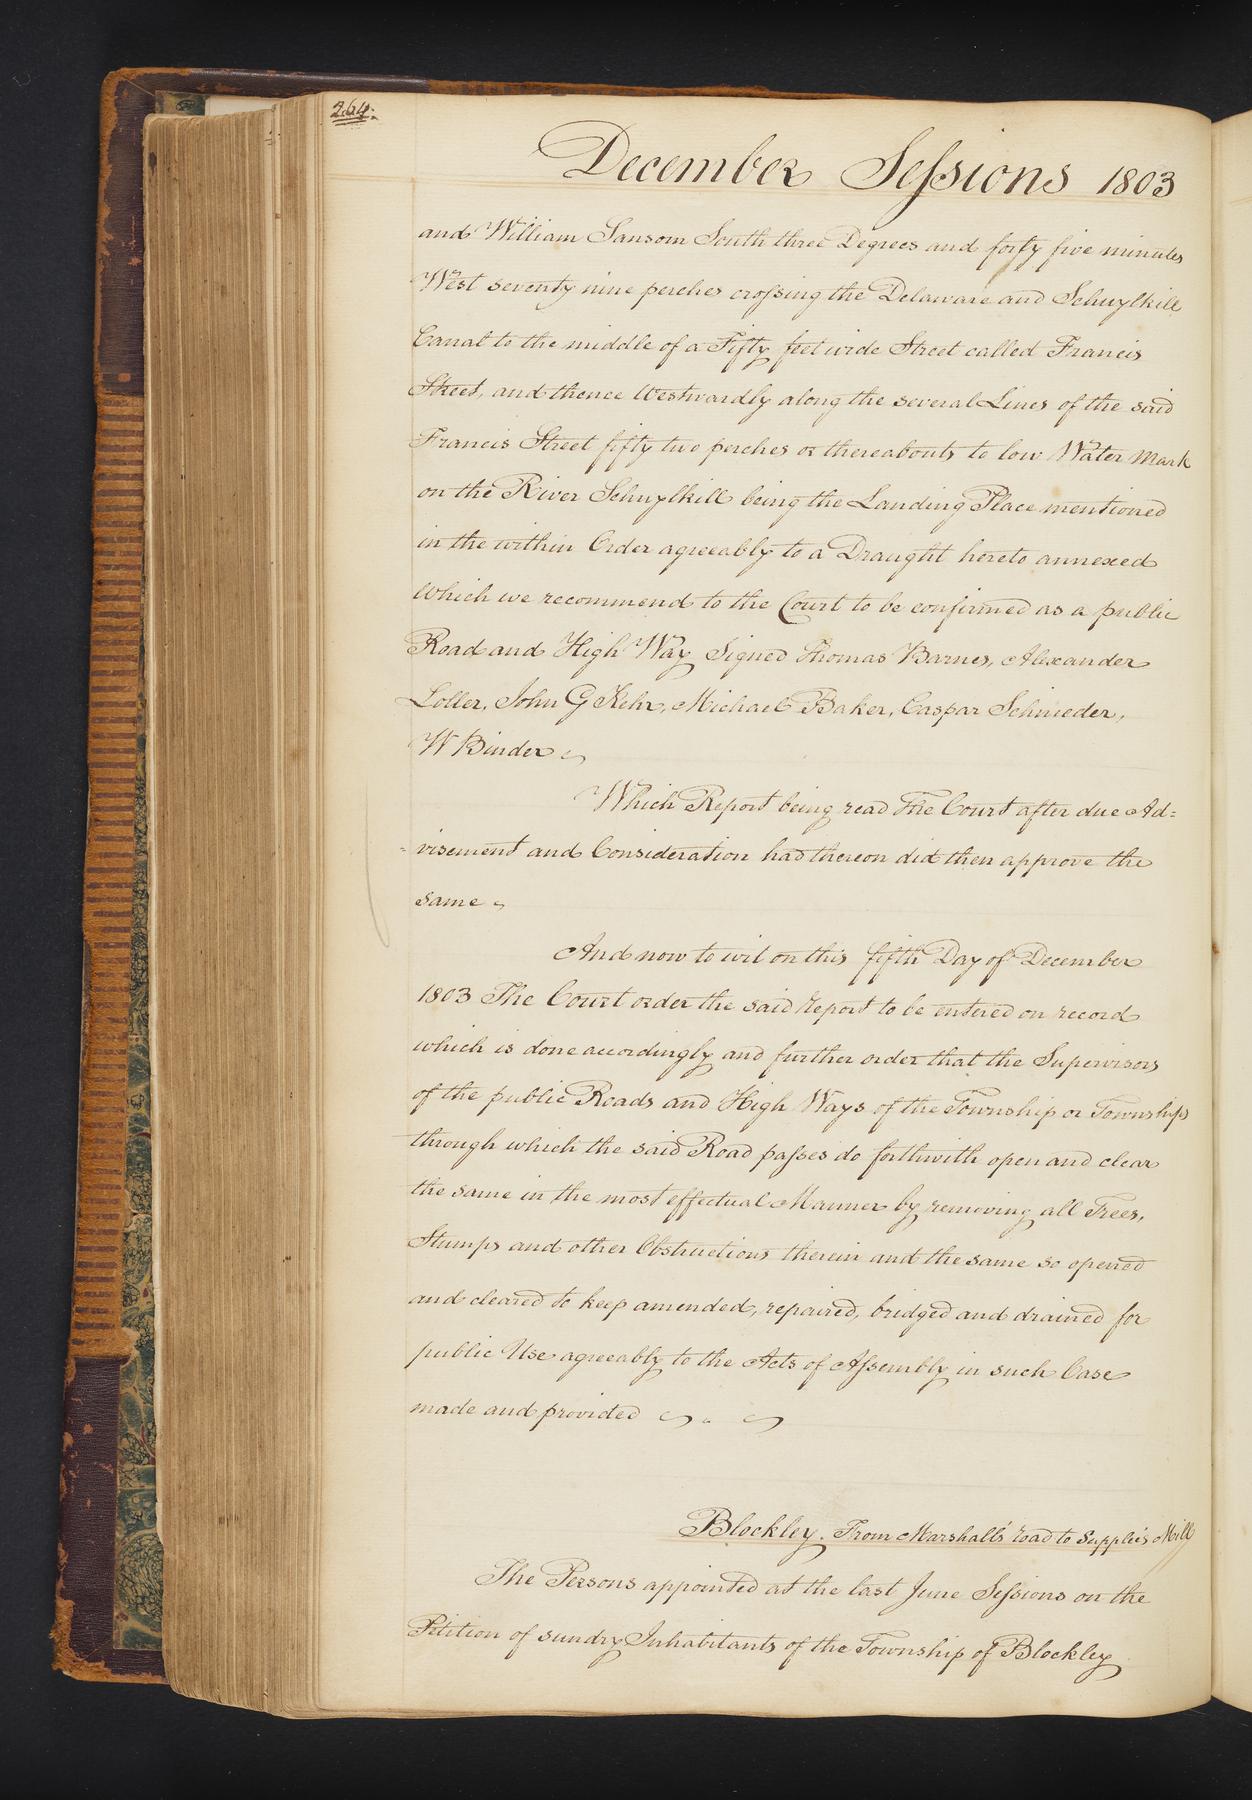 264.
December Sessions 1803
and William Sansom South three Degrees and forty five minutes
West seventy nine perches crossing the Delaware and Schuylkill
Canal to the middle of a Fifty feet wide Street called Francis
Street, and thence Westwardly along the several Lines of the said
Francis Street fifty two perches or thereabouts to low Water Mark
on the River Schuylkill being the Landing Place mentioned
in the within Order agreeably to a Draught hereto annexed
which we recommend to the Court to be confirmed as a public
Road and High Way Signed Thomas Barnes, Alexander
Loller, John G Kehr, Michael Baker, Caspar Schnieder,
W Binder
Which Report being read The Court after due Ad=
=visement and Consideration had thereon did then approve the
same
And now to wit on this fifth Day of December
1803 The Court order the said report to be entered on record
which is done accordingly and further order that the Supervisors
of the public Roads and High Ways of the Township or Townships
through which the said Road passes do forthwith open and clear
the same in the most effectual Manner by removing all Trees,
Stumps and other Obstructions therein and the same so opened
and cleared to keep amended, repaired, bridged and drained for
public Use agreeably to the Acts of Assembly in such Case
made and provided
Blockley. From Marshall's road to Supplee's Mill
The Persons appointed at the last June Sessions on the
Petition of sundry Inhabitants of the Township of Blockley